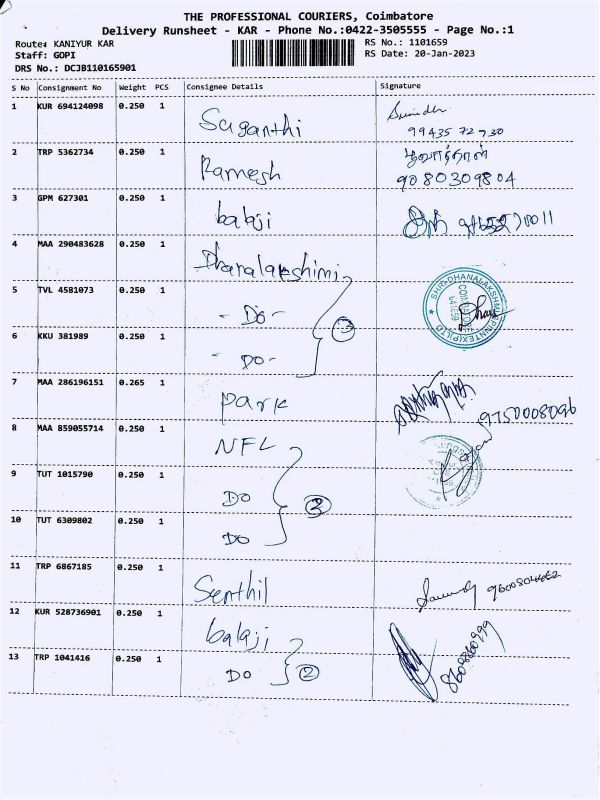 THE PROFESSIONAL COURIERS, Coimbatore
Delivery Runsheet - KAR - Phone No.:0422-3505555 - Page No.:1
Route: KANIYUR KAR RS No.: 1101659
Staff: GOPI RS Date: 20-Jan-2023
DRS No.: DCJB110165901
S No Consignment No Weight PCS Consignee Details Signature
1 KUR 694124098 0.250 1 Suganthi
99435 72730
2 TRP 5362734 0.250 1 Ramesh
9080309804
3 GPM 627301 0.250 1 balaji
4 MAA 290483628 0.250 1 Dhanalakshimi
5 TVL 4581073 0.250 1 - Do - 3
6 KKU 381989 0.250 1 - Do -
7 MAA 286196151 0.265 1 Park 9750008096
8 MAA 859055714 0.250 1 NFL
9 TUT 1015790 0.250 1 Do 3
10 TUT 6309802 0.250 1 Do
11 TRP 6867185 0.250 1 Senthil
12 KUR 528736901 0.250 1 balaji
13 TRP 1041416 0.250 1 Do 2